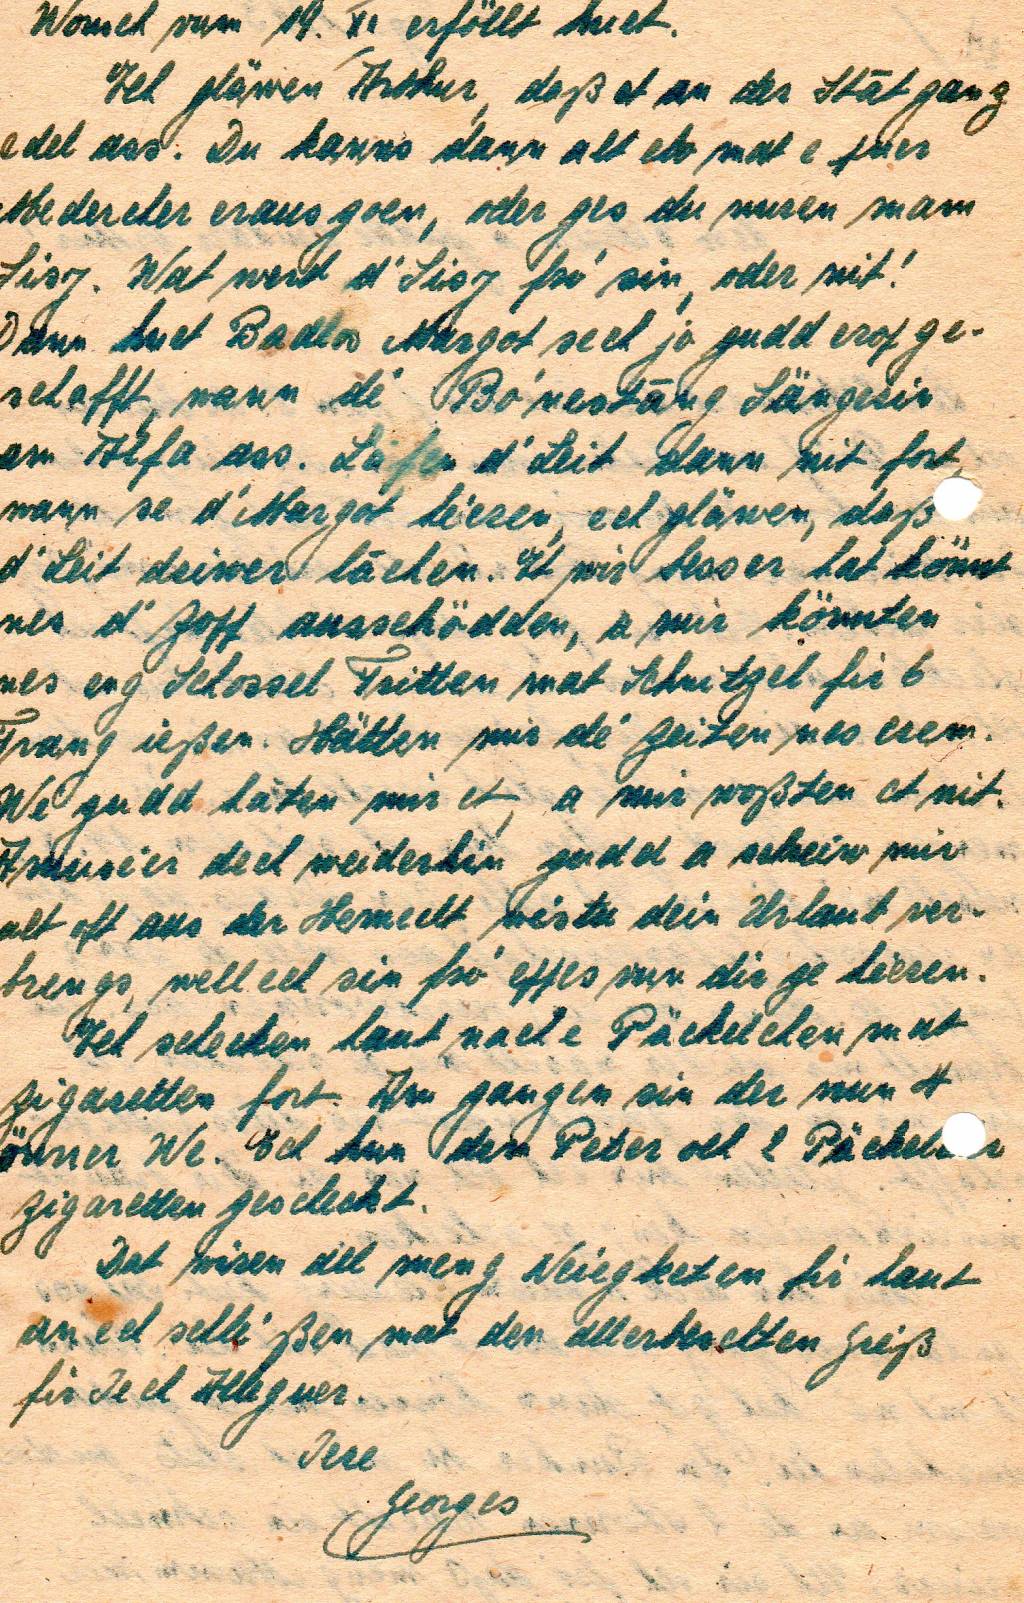 Wonsch vum 19. XI erföllt huet.
Ech gläwen Arthur, daß et an der Stāt ganz
edel ass. Du kanns dann alt eb mat e puer
Medercher eraus goen, oder ges du nuren mam
Sisy. Wat werd d'Sisy fro' sin, oder nit!
Dann huet Badlos Margot sech jo gudd erop ge-
schafft, wann dé Bo'nestāng Sängesin
am Alfa ass. Lafen d'Leit dann nit fort,
wann se d'Margot héieren, ech gläwen, daß
d'Leit deiwer lāchen. Et wir besser hat könnt
nes d' Zopp ausschödden, a mir könnten
nes eng Schossel Fritten mat Schnitzel fir 6
Frang ießen. Hätten mir dé Zeiten nes erem.
We gudd hāten mir et, a mir woßten et nit.
Amuséier dech weiderhin gudd a schreiw mir
alt oft aus der Hemecht wéistu dein Urlaub ver-
brengs, well ech sin fro' eppes vun dir ze héieren.
Ech schecken haut nach e Päckelchen mat
Zigaretten fort. Am gangen sin der nun 4
önner We. Ech hun dem Peter och 2 Päckelcher
Zigaretten gescheckt.
Dat wiren all meng Neiegketen fir haut
an ech schlé'ßen mat den allerbeschten Greiß
fir Iech Alleguer.
Iere
Georges